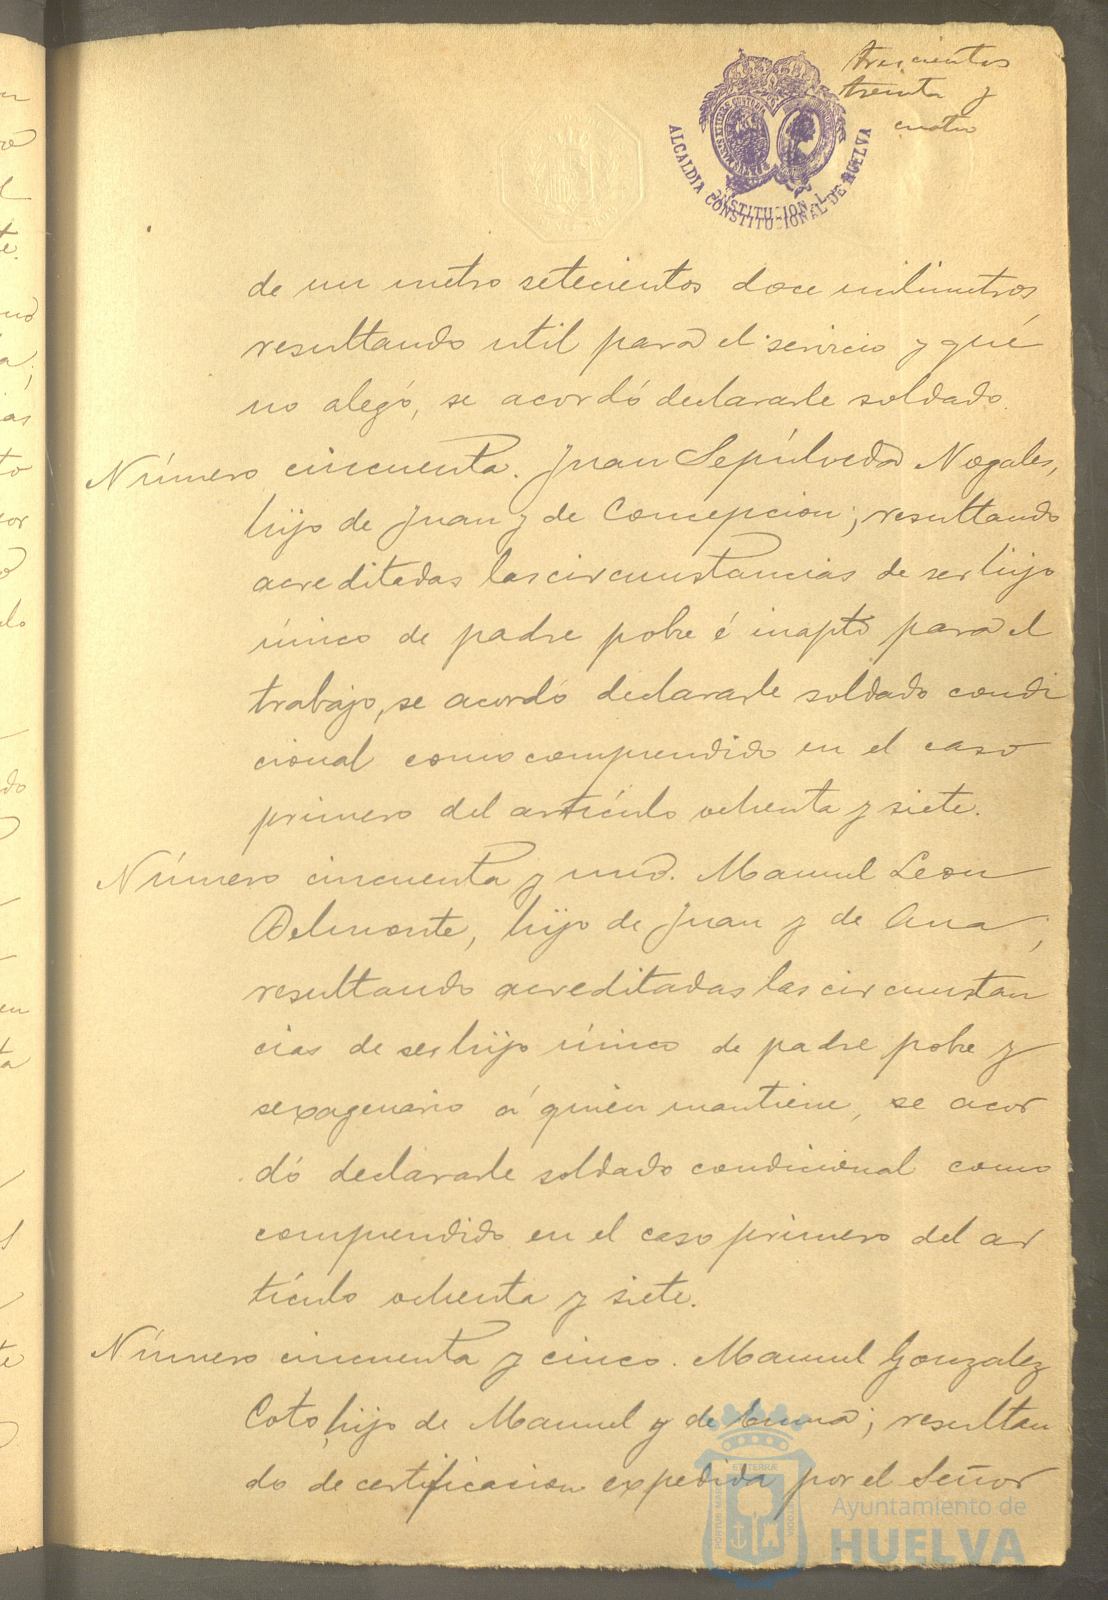 trescientos
treinta y
cuatro
ALCALDIA CONSTITUCIONAL DE HUELVA
de un metro setecientos doce milimetros
resultando util para el servicio y qué
no alegó, se acordó declararle soldado.
Número cincuenta. Juan Sepúlveda Nogales,
hijo de Juan y de Concepcion; resultando
acreditadas las circunstancias de ser hijo
único de padre pobre é inapto para el
trabajo, se acordó declararle soldado condi
cional como comprendido en el caso
primero del artículo ochenta y siete.
Número cincuenta y uno. Manuel Leon
Belmonte, hijo de Juan y de Ana,
resultando acreditadas las circunstan
cias de ser hijo único de padre pobre y
sexagenario á quien mantiene, se acor
dó declararle soldado condicional como
comprendido en el caso primero del ar
tículo ochenta y siete.
Número cincuenta y cinco. Manuel Gonzalez
Coto, hijo de Manuel y de; resultan
do de certificacion expedida por el Señor
Ayuntamiento de
HUELVA